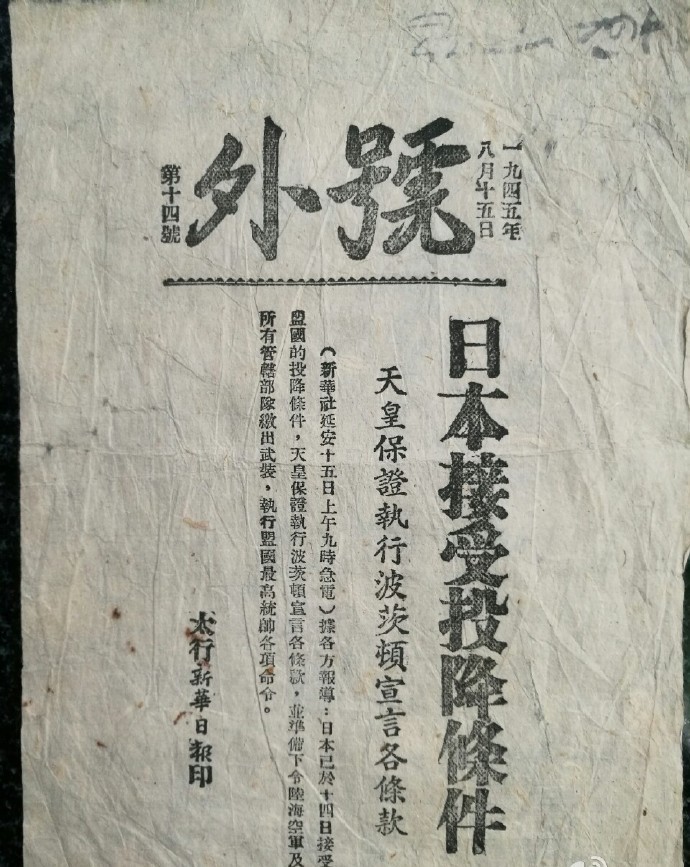 一九四五年
八月十五日
號外
第十四號
日本接受投降條件
天皇保證執行波茨頓宣言各條款
（新華社延安十五日上午九時急電）據各方報導：日本已於十四日接受
盟國的投降條件，天皇保證執行波茨頓宣言各條款，並準備下令陸海空軍及
所有管轄部隊繳出武裝，執行盟國最高統帥各項命令。
太行新華日報印